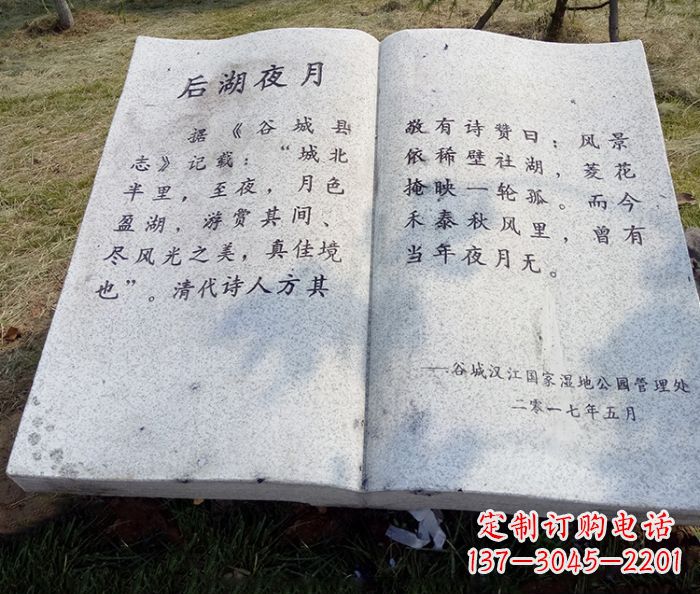 后湖夜月
据《谷城县
志》记载：“城北
半里，至夜，月色
盈湖，游赏其间、
尽风光之美，真佳境
也”。清代诗人方其
敬有诗赞曰：风景
依稀壁社湖，菱花
掩映一轮孤。而今
禾泰秋风里，曾有
当年夜月无。
——谷城汉江国家湿地公园管理处
二零一七年五月
定制订购电话
137-3045-2201